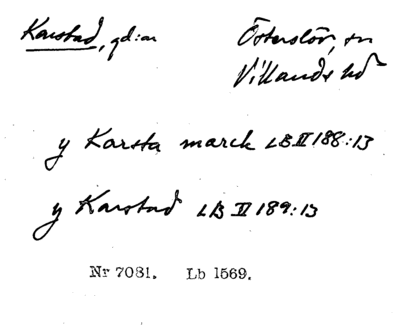 Karstad, gd:ar Österslöv, sn
Villands hd
y Karsta marck LB II 188:13
y Karstad LB II 189:13
Nr 7081. Lb 1569.